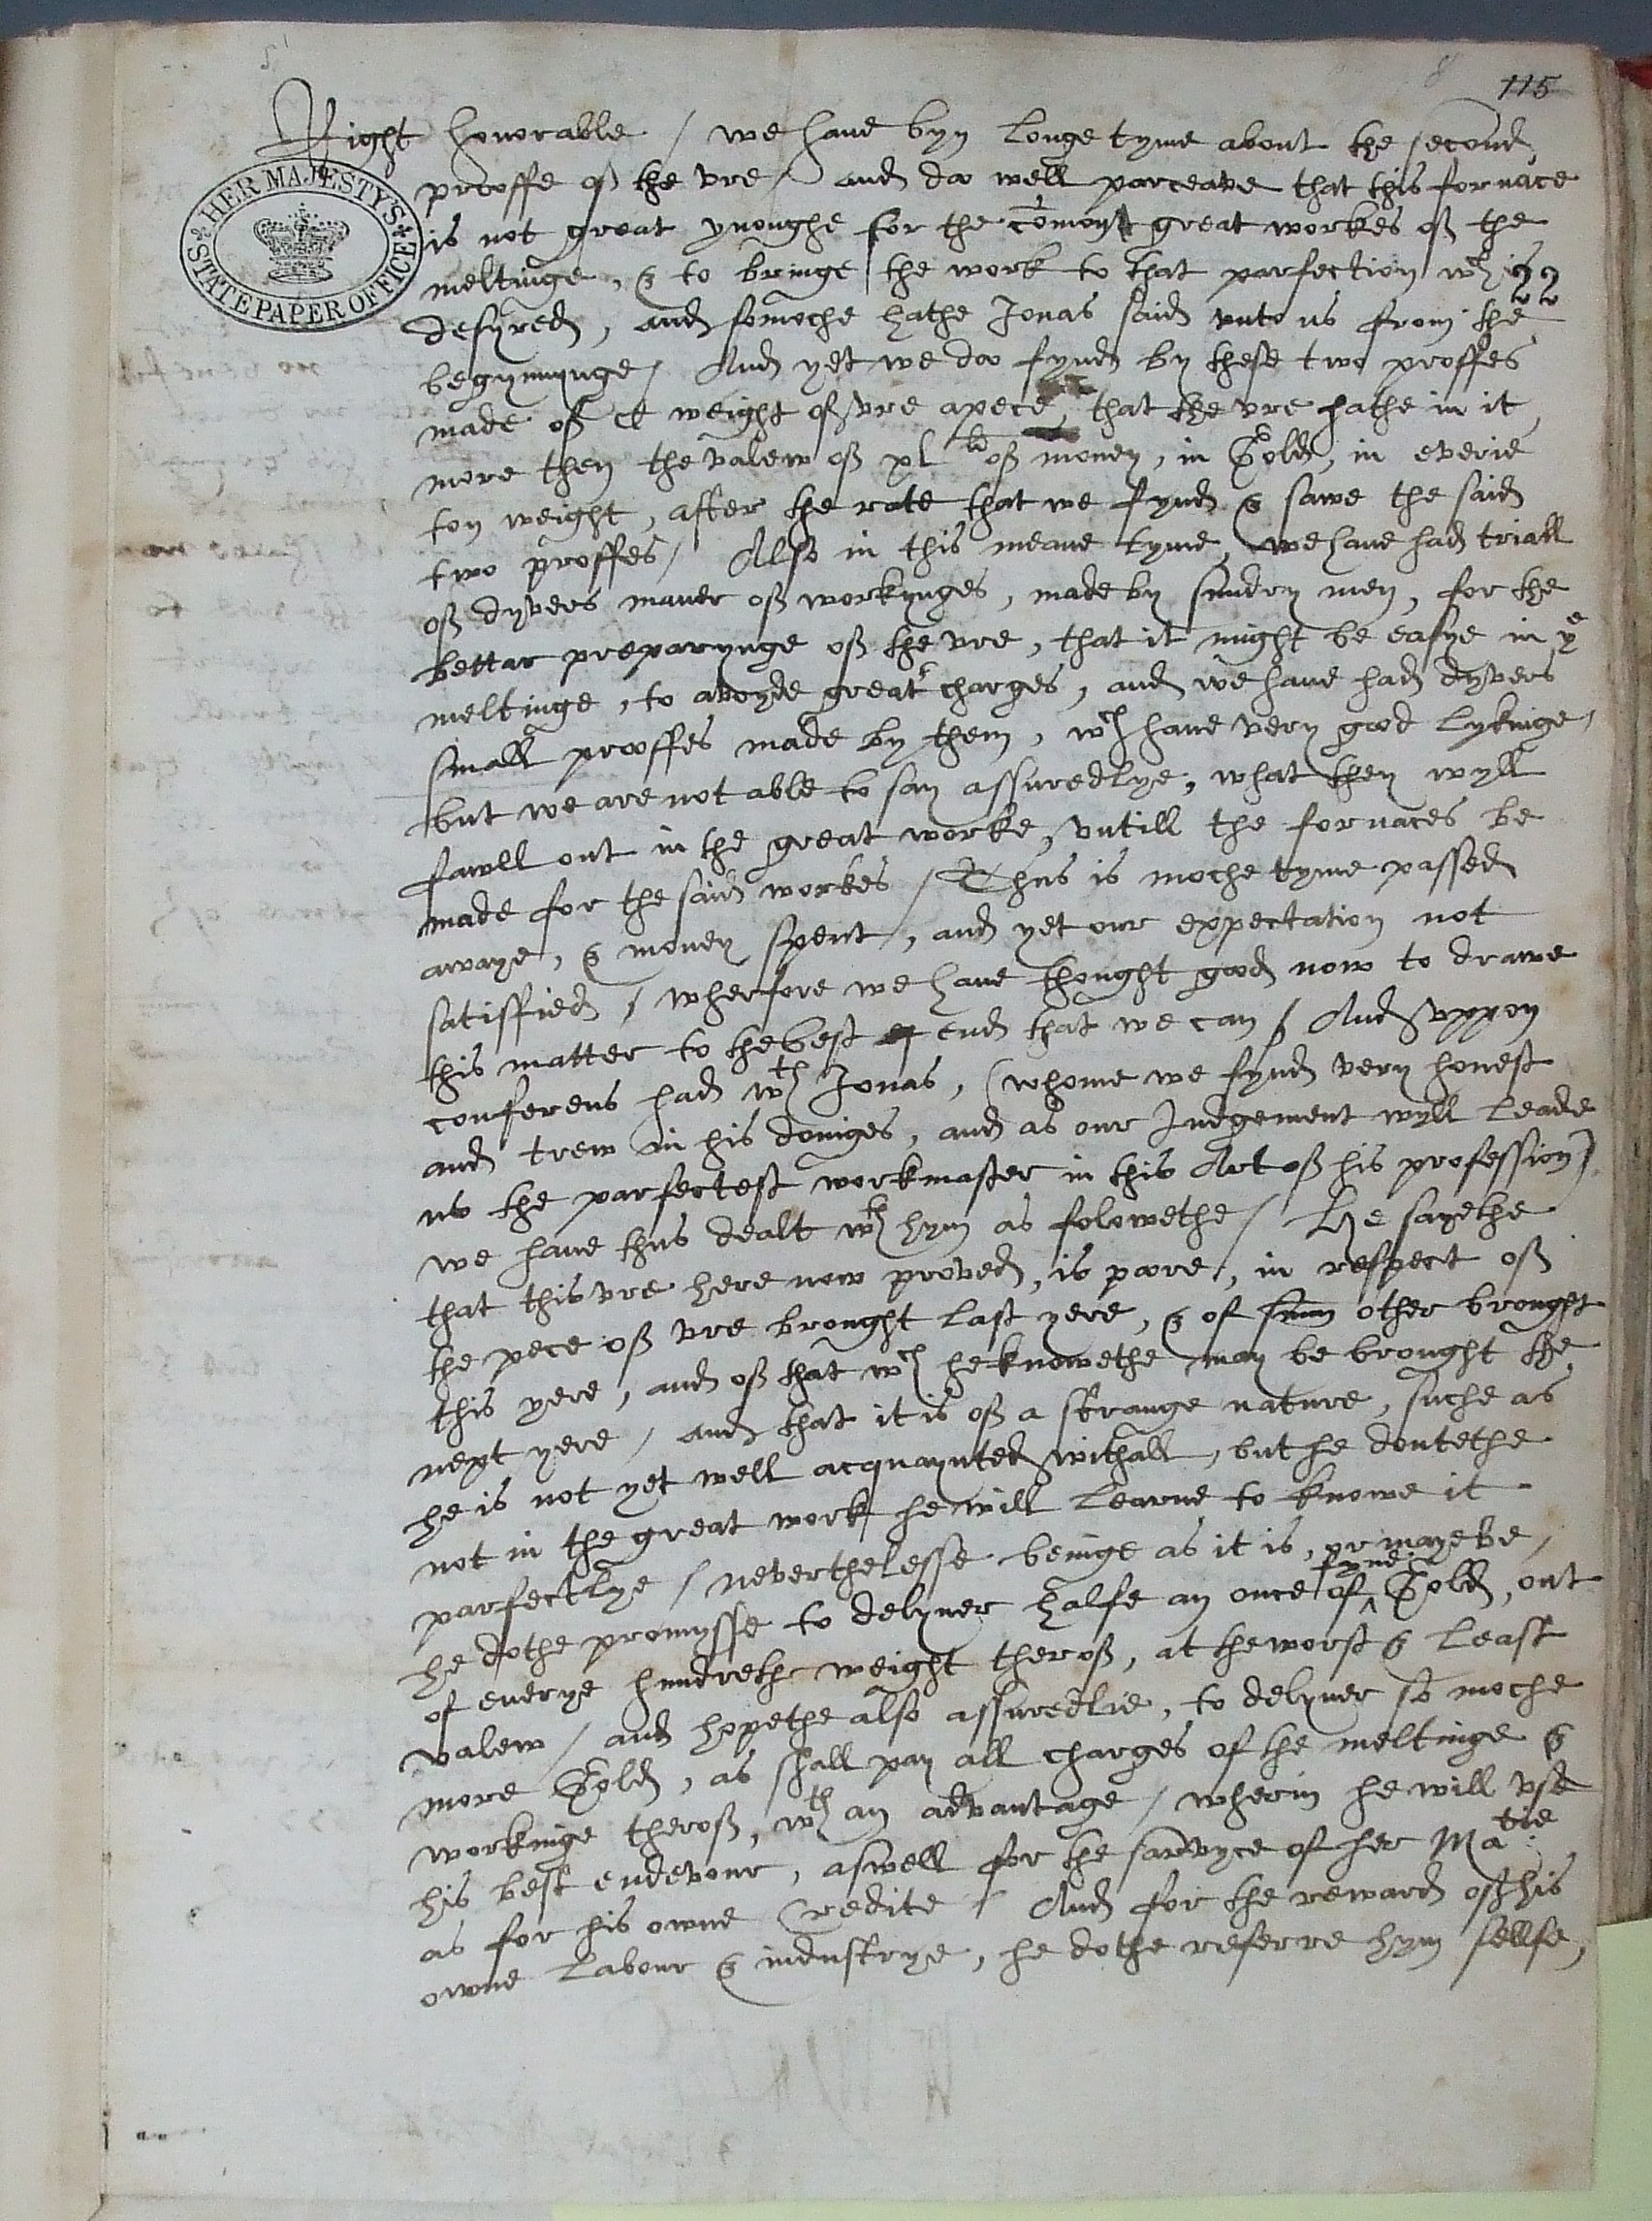 115
Right honorable / we have byn longe tyme about the second
HER MAJESTY'S STATE PAPER OFFICE
prooffe of the vre / and do well parceave that this fornace
is not great ynoughe for the great workes of the
meltinge, & to bringe the work to that parfection wch is
desyred, and somoche hathe Jonas said unto us from the
22
begynnynge / And yet we do fynd by these two proffes
made of Ct weight of vre apece, that the vre hathe in it
more then the valew of xl li of money, in Gold, in everie
ton weight, after the rate that we fynd & sawe the said
two proffes / Also in this meane tyme, we have had triall
of dyvers maner of workynges, made by sundry men, for the
bettar preparynge of the vre, that it might be easye in ye
meltinge, to avoyde great charges, and we have had dyvers
small prooffes made by them, wch have very good lykinge /
but we are not able to say assuredlye, what they wyll
fawll out in the great worke, vntill the fornaces be
made for the said workes / Thus is moche tyme passed
awaye, & money spent, and yet our expectation not
satisffied / wherfore we have thought good now to drawe
this matter to the best end that we can / And vppon
conferens had wth Jonas, (whome we fynd very honest
and trew in his doinges, and as our Judgement wyll leade
us the parfectest workmaster in this Art of his profession)
we have thus dealt wth hym as folowethe / He sayethe
that this vre here now proved, is poore, in respect of
the pece of vre brought last yere, & of sum other brought
this yere, and of that wch he knowethe may be brought the
next yere / and that it is of a strange nature, suche as
he is not yet well acquaynted withall, but he doutethe
not in the great work he will learne to knowe it
parfectlye / neverthelesse beinge as it is, or maye be,
he dothe promysse to delyver halfe an once of ^fyne Gold, out
of everye hundreth weight therof, at the worst & least
valew / and hopethe also assuredlie, to delyver so moche
more Gold, as shall pay all charges of the meltinge &
workinge therof, wth an advantage / wherin he will vse
his best endevour, aswell for the sarvyce of her Matie
as for his owne Credite / And for the reward of his
owne labour & industrye, he dothe referre hym sellfe,